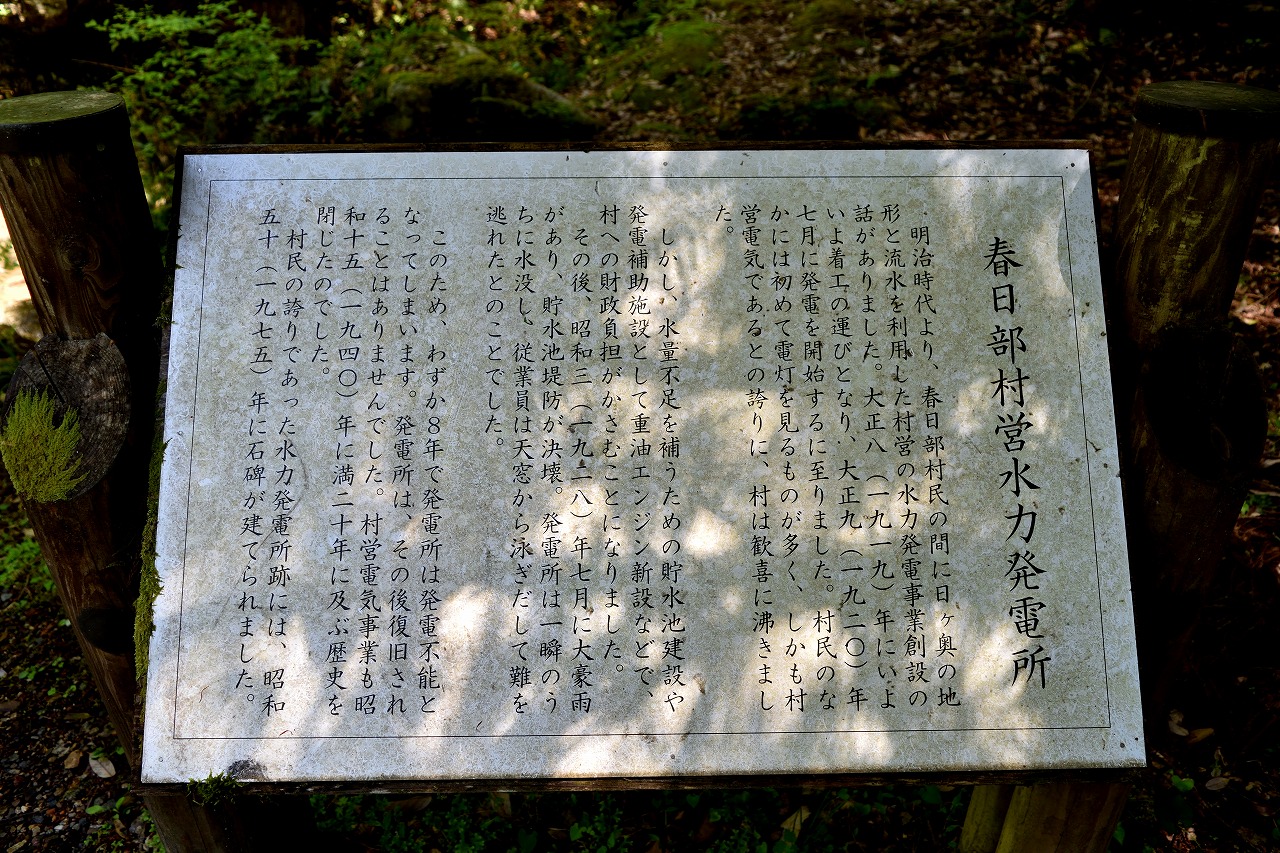 春日部村営水力発電所
明治時代より、春日部村民の間に日ヶ奥の地
形と流水を利用した村営の水力発電事業創設の
話がありました。大正八(一九一九)年にいよ
いよ着工の運びとなり、大正九(一九二〇)年
七月に発電を開始するに至りました。村民のな
かには初めて電灯を見るものが多く、しかも村
営電気であるとの誇りに、村は歓喜に沸きまし
た。
しかし、水量不足を補うための貯水池建設や
発電補助施設として重油エンジン新設などで、
村への財政負担がかさむことになりました。
その後、昭和三(一九二八)年七月に大豪雨
があり、貯水池堤防が決壊。発電所は一瞬のう
ちに水没し、従業員は天窓から泳ぎだして難を
逃れたとのことでした。
このため、わずか8年で発電所は発電不能と
なってしまいます。発電所は、その後復旧され
ることはありませんでした。村営電気事業も昭
和十五(一九四〇)年に満二十年に及ぶ歴史を
閉じたのでした。
村民の誇りであった水力発電所跡には、昭和
五十(一九七五)年に石碑が建てられました。